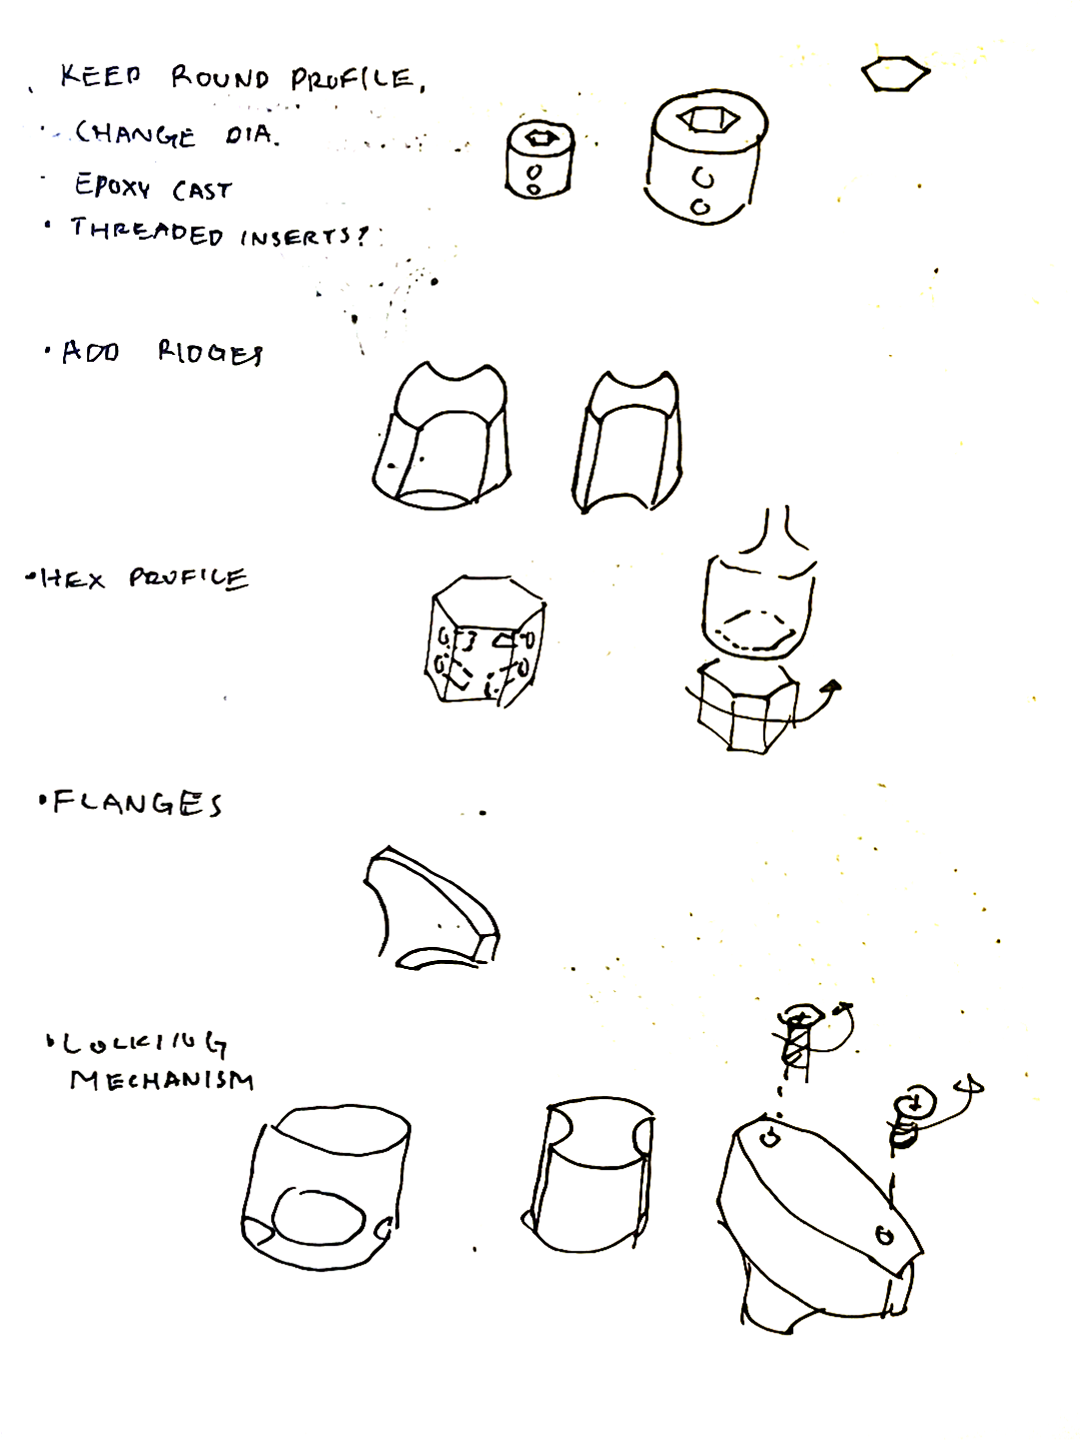 KEEP ROUND PROFILE.
· CHANGE DIA.
· EPOXY CAST
· THREADED INSERTS?
· ADD RIDGES
· HEX PROFILE
· FLANGES
· LOCKING
MECHANISM